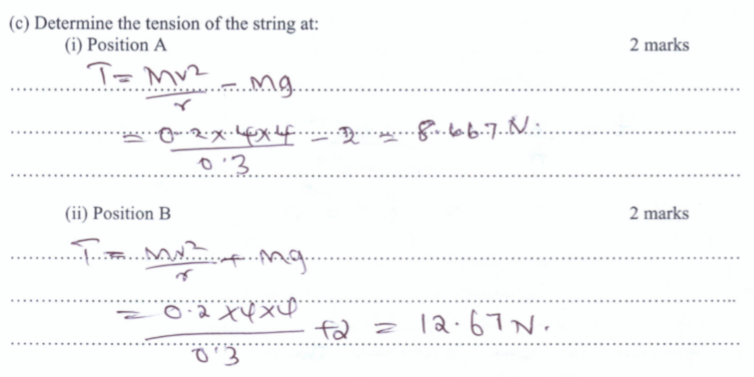 (c) Determine the tension of the string at:
(i) Position A 2 marks
T = Mv²/r - mg
= 0.2 x 4x4/0.3 - 2 = 8.667 N.
(ii) Position B 2 marks
T = Mv²/r + mg
= 0.2 x4x4/0.3 +2 = 12.67 N.